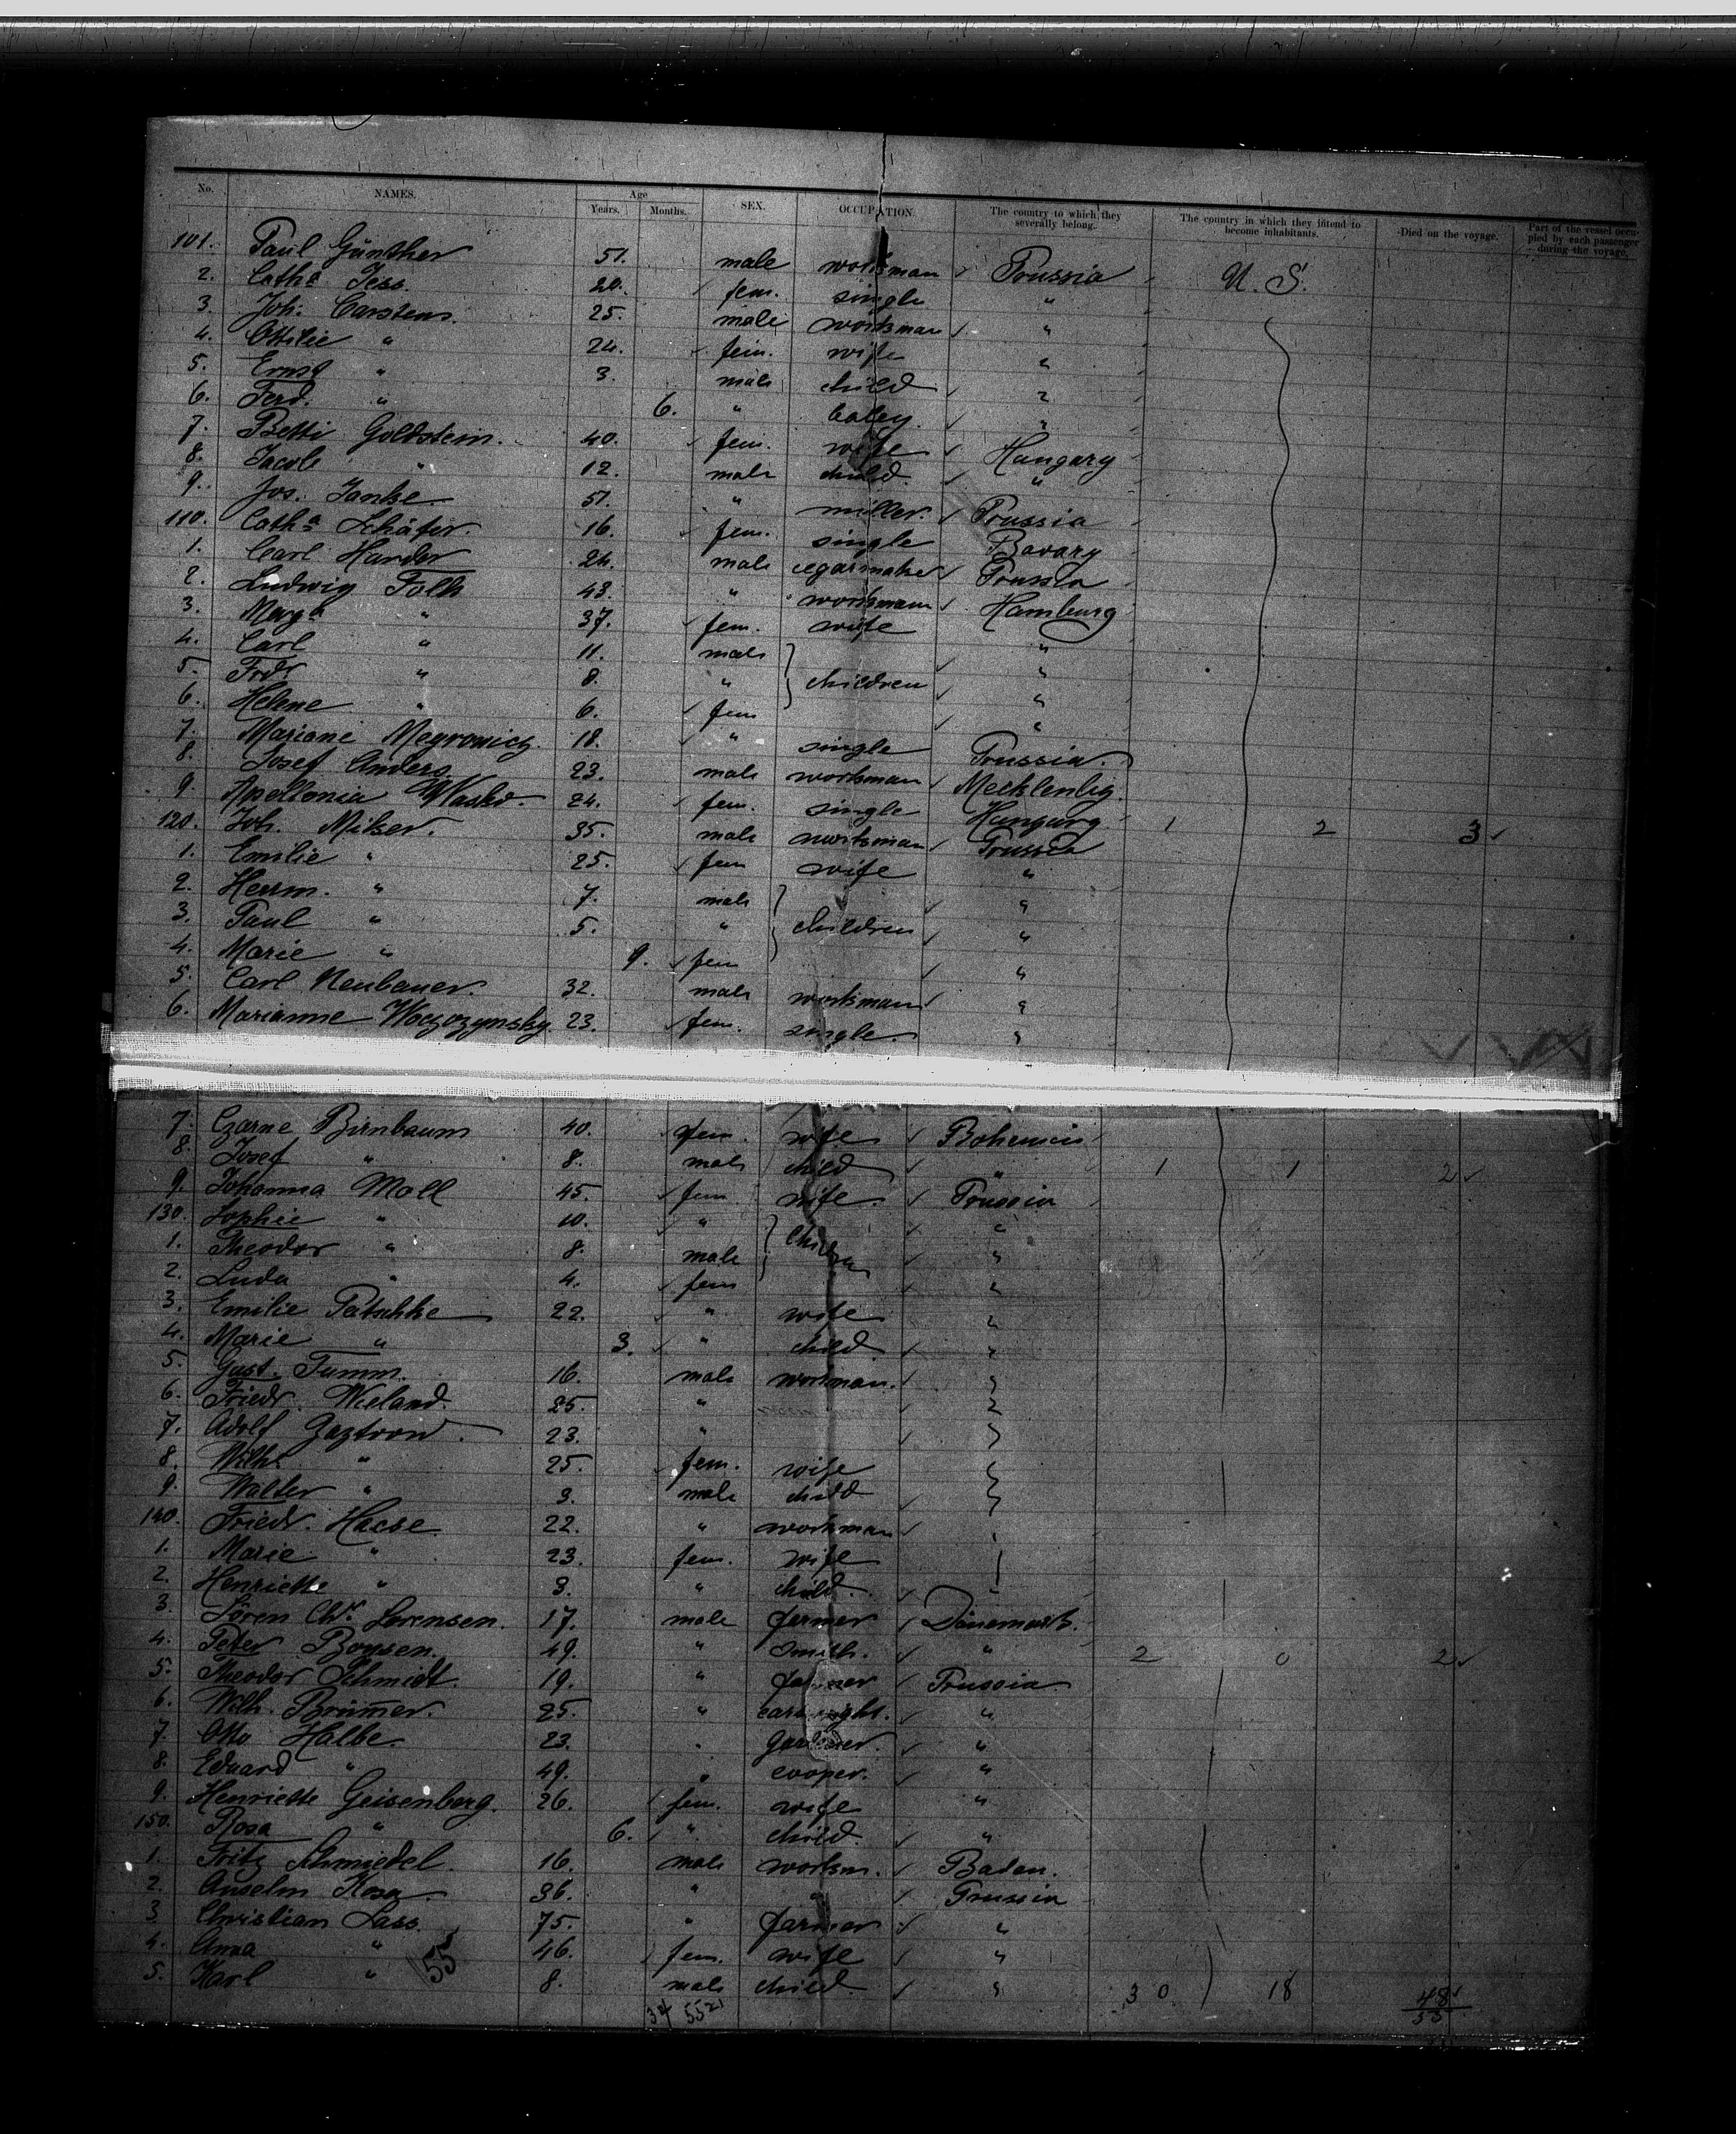 No. NAMES. Age Years. Months. SEX. OCCUPATION. The country to which they severally belong. The country in which they intend to become inhabitants. Died on the voyage. Part of the vessel occupied by each passenger during the voyage.
101. Paul Günther 51. male workman Prussia U. S.
2. Cathe Jess. 20. fem. single "
3. Joh. Carstens. 25. male workman "
4. Ottilie " 24. fem. wife "
5. Ernst " 3. male child "
6. Ferd. " 6. " baby. "
7. Betti Goldstein. 40. fem. wife Hungary
8. Jacob " 12. male child. "
9. Jos. Janke 51. " miller. Prussia
110. Catha Schäfer. 16. fem. single Bavary
1. Carl Harder 24. male cegarmaker Prussia
2. Ludwig Folk 43. " workmann Hamburg
3. Marga " 37. fem. wife "
4. Carl " 11. male "
5. Frdr " 8. " children "
6. Helene " 6. fem "
7. Mariane Meyrowicz. 18. " single Prussia.
8. Josef Anders 23. male workman Mecklenbg.
9. Apollonia 24. fem. single Hungary 1 2 3
120. Joh. Milser. 35. male workman Prussia
1. Emilie " 25. fem wife "
2. Herrm. " 7. male "
3. Paul " 5. " children "
4. Marie " 9. fem "
5. Carl Neubauer. 32. male workmann "
6. Marianne Woczozynsky. 23. fem. single. "
7. Czarne Birnbaum 40. fem. wife Bohemia
8. Josef " 8. male child " 1 1 2
9. Johanna Moll 45. fem wife. Prussia
130. Sophie " 10. " "
1. Theodor " 8. male children "
2. Luda " 4. fem "
3. Emilie Patschke 22. " wife "
4. Marie " 3. " child. "
5. Gust. Tumm. 16. male workman. "
6. Friedr. Wieland. 25. " "
7. Adolf Gaztrow. 23. "
8. Wilhe " 25. fem. wife
9. Walter " 3. male child
140. Friedr. Haese. 22. " workman
1. Marie " 23. fem. wife
2. Henriette " 3. " child.
3. Sören Chr. Sorensen. 17. male farmer Dänemark.
4. Peter Boysen. 49. " smith. " 2 0 2
5. Theodor Schmidt. 19. " farmer Prussia
6. Wilh. Brümer. 25. " cartwright. "
7. Otto Halbe. 23. " gardener. "
8. Eduard " 49. " cooper. "
9. Henriette Geisenberg. 26. fem. wife "
150. Rosa " 6. " child. "
1. Fritz Schmiedel. 16. male workm. Baden.
2. Anselm Kosa 36. " " Prussia
3. Christian Lass. 75. " farmer "
4. Anna " 46. fem. wife "
5. Karl " 8. male child. " 30 18 48
55
34 55 21 55